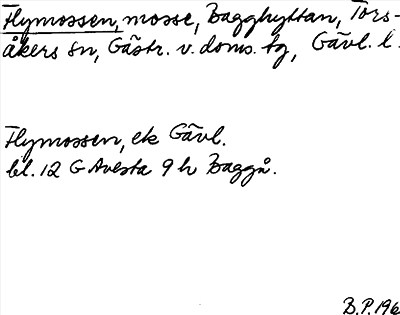 Flymossen, mosse, Bagghyttan, Tors-
åkers sn, Gästr. v. doms. tg, Gävl. l.
Flymossen, ek Gävl.
bl. 12 G Avesta 9 h Baggå.
B.P. 196